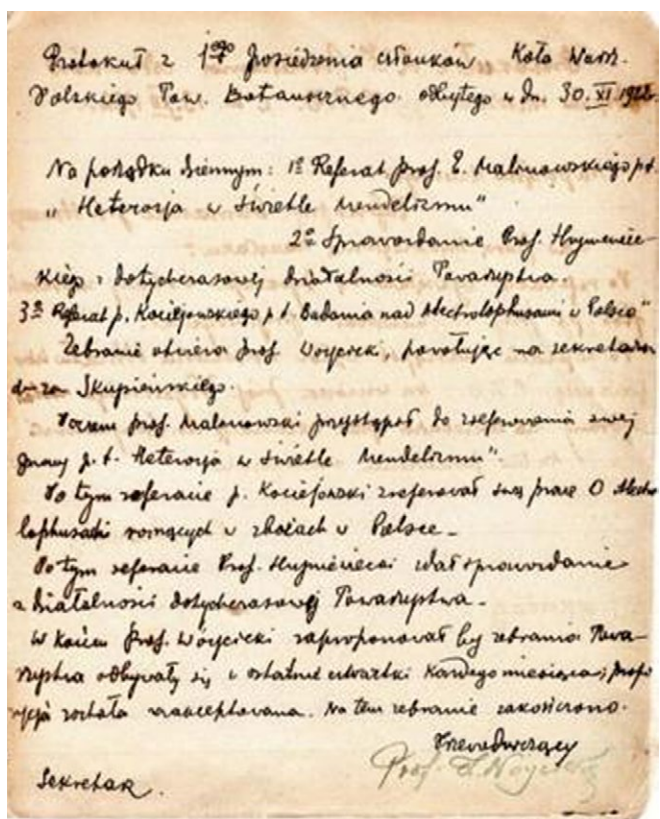 Protokuł z 1go posiedzenia członków Koła Warsz.
Polskiego Tow. Botanicznego odbytego w dn. 30. XI 1922.
Na porządku dziennym: 1º Referat prof. E. Malinowskiego p.t.
„Heterozja w świetle Mendelizmu"
2º Sprawozdanie Prof. Hryniewiec-
kiego z dotychczasowej działalności Towarzystwa.
3º Referat p. Kociejowskiego p.t. Badania nad Alectrolophusami w Polsce"
Zebranie otwiera prof. Wóycicki, powołując na sekretarza
d-ra Skupieńskiego.
Poczem prof. Malinowski przystąpił do zreferowania swej
pracy p.t. Heterozja w świetle Mendelizmu"
Po tym referacie p. Kociejowski zreferował swą pracę O Alectro
lophusach rosnących w zbożach w Polsce -
Po tym referacie Prof. Hryniewiecki zdał sprawozdanie
z działalności dotychczasowej Towarzystwa -
W końcu Prof. Wóycicki zaproponował by zebrania Towa-
rzystwa odbywały się w ostatnie czwartki każdego miesiąca; propo
zycja została zaakceptowana. Na tem zebranie zakończono.
Przewodniczący
Prof. Z. Wóycicki
Sekretarz.